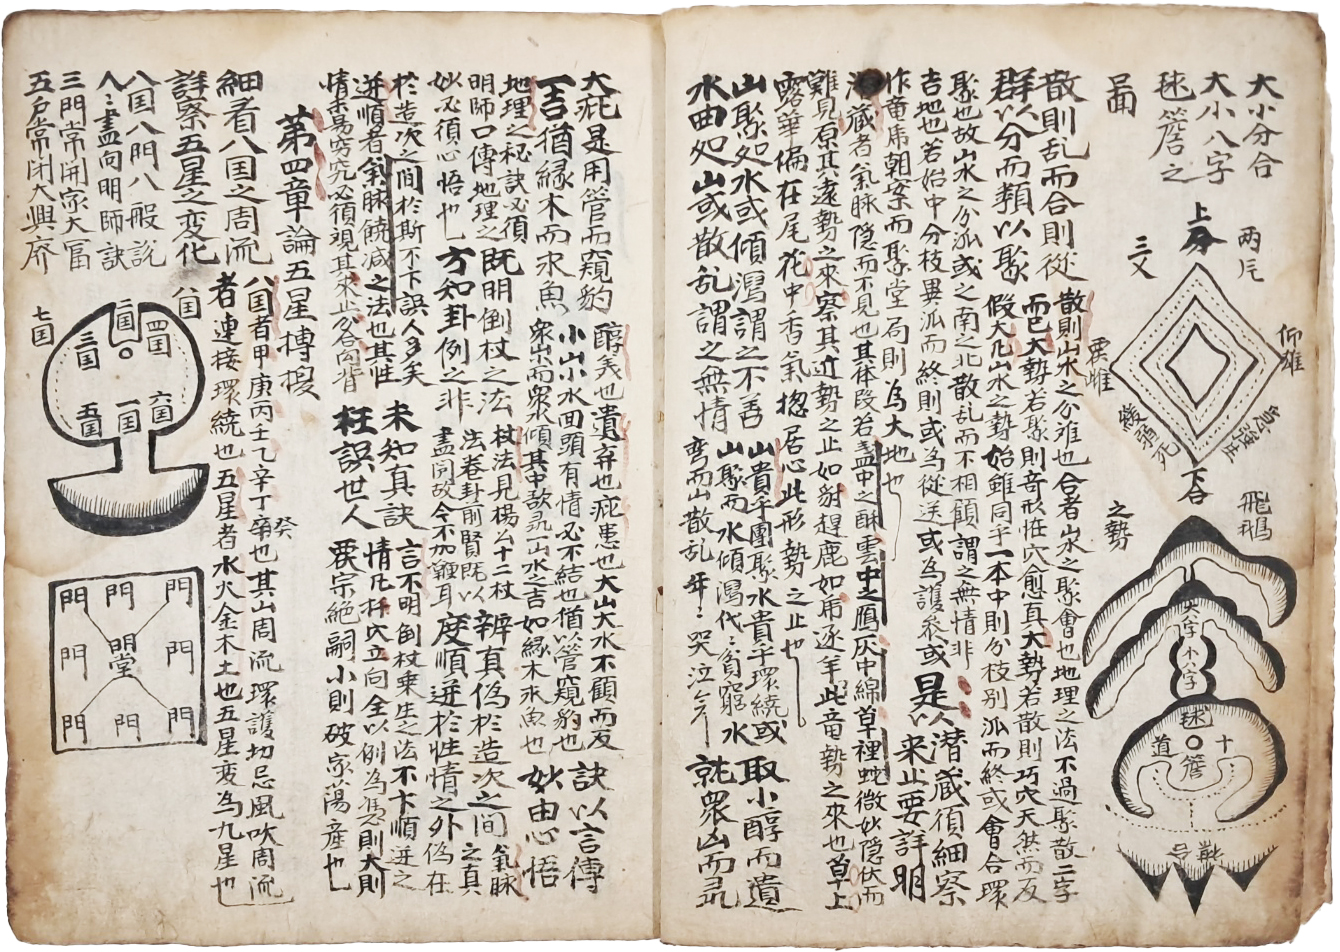 大小分合
大小八字
毬簷之
圖
上分
兩片
三叉
仰雄
覆雌
急強生
緩弱死
下合
飛鵝
之勢
大字
小八字
毬
簷
十道
合襟
散則乱而合則從
群以分而類以聚
散則山水之分难也合者山水之聚會也地理之法不過聚散二字
而已大勢若聚則奇形怪穴愈真大勢若散則巧穴天然而反
假大凡山水之勢始雖同乎一本中則分枝別派而終或會合環
聚也故山水之分派或之南之北散乱而不相顧謂之無情非
吉地也若始中分枝異派而終則或為從送或為護衆或
作竜虎朝案而聚堂一局則為大地也
是以潜藏須細察
来止要詳明
潜藏者氣脉隐而不見也其体段若盞中之酥雲中之鴈灰中綿草裡蛇微妙隠伏而
難見原其遠勢之來察其近勢之止如射趕鹿如帶逐羊此竜勢之來也草上
露華偏在尾花中香氣揔居心此形勢之止也
山聚処水或傾瀉謂之不善
水曲処山或散乱謂之無情
山貴乎團聚水貴乎環繞或
山聚而水傾瀉代〻貧窮水
弯而山散乱年〻哭泣矣
取小醇而遺
就衆凶而尋
大疵是用管而窺豹
一吉猶緣木而求魚
醇美也遺弃也疵患也大山大水不顧而反
小山小水囬頭有情必不結也猶以管窺豹也
衆山而衆水傾其中故尋一山水之吉如緣木求魚也
訣以言傳
妙由心悟
地理之秘訣必須
明師口傳地理之
妙必須心悟也
既明倒杖之法
方知卦例之非
杖法見楊公十二杖
法卷卦前賢既以
盡闢故今不加贅耳
辨真偽於造次之間
度順逆於性情之外
氣脉
之真
偽在
於造次之間於斯不下誤人多矣
逆順者氣脉饒減之法也其性
情素昜窮究必須視其來止分合向背
未知真訣
枉誤世人
言不明倒杖乗生之法不卞順逆之
情凡扦穴立向全以例為㨿則大則
覆宗絶嗣小則破家蕩産也
第四章論五星摶揑
細看八国之周流
詳察五星之变化
八国者甲庚丙壬乙辛丁癸也其山周流環護切忌風吹周流
者連接環繞也五星者水火金木土也五星変為九星也
八国八門八般説
八〻盡向明師訣
三門常開家大冨
五户常閉大興廢
八国
七国
二国
四国
三国
六国
一国
五国
門 門 門
門 明堂 門
門 門 門